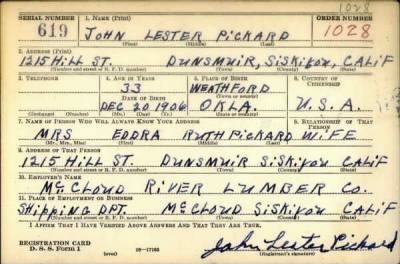 1028
SERIAL NUMBER 1. NAME (Print) ORDER NUMBER
619 JOHN LESTER PICKARD 1028
(First) (Middle) (Last)
2. ADDRESS (Print)
1215 HILL ST. DUNSMUIR, SISKIYOU, CALIF
(Number and street or R. F. D. number) (Town) (County) (State)
3. TELEPHONE 4. AGE IN YEARS 5. PLACE OF BIRTH 6. COUNTRY OF CITIZENSHIP
33 WEATHFORD
DATE OF BIRTH (Town or county)
DEC 20 1906 OKLA. U.S.A.
(Exchange) (Number) (Mo.) (Day) (Yr.) (State or country)
7. NAME OF PERSON WHO WILL ALWAYS KNOW YOUR ADDRESS 8. RELATIONSHIP OF THAT PERSON
MRS EDDRA RUTH PICKARD WIFE
(Mr., Mrs., Miss) (First) (Middle) (Last)
9. ADDRESS OF THAT PERSON
1215 HILL ST. DUNSMUIR SISKIYOU CALIF
(Number and street or R. F. D. number) (Town) (County) (State)
10. EMPLOYER'S NAME
McCLOUD RIVER LUMBER CO.
11. PLACE OF EMPLOYMENT OR BUSINESS
SHIPPING DPT. McCLOUD SISKIYOU CALIF
(Number and street or R. F. D. number) (Town) (County) (State)
I AFFIRM THAT I HAVE VERIFIED ABOVE ANSWERS AND THAT THEY ARE TRUE.
REGISTRATION CARD
D. S. S. Form 1 (over) 16-17105 John Lester Pickard
(Registrant's signature)